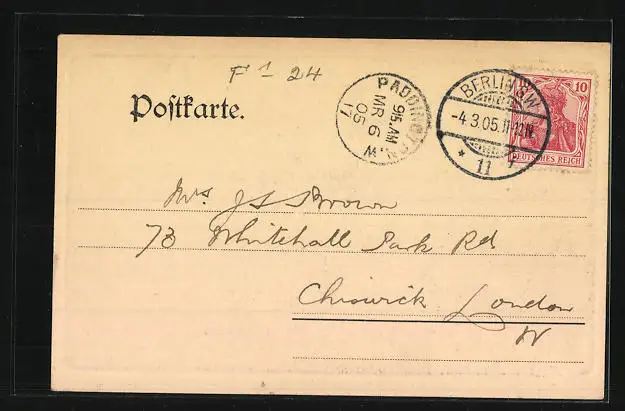 F 1 - 24
Postkarte.
PADDINGTON
9 15 AM
MR 6
05
17
W.
BERLIN SW
-4.3.05.11-12N
* 11
10
DEUTSCHES REICH
Mrs J S Brown
73 Whitehall Park Rd
Chiswick London
W